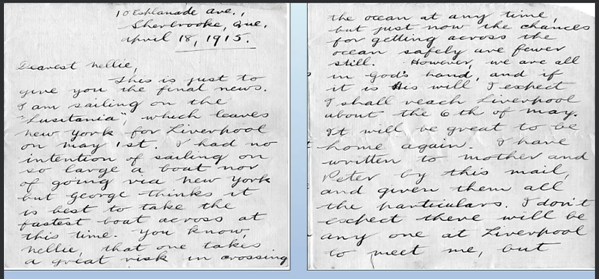 10 Esplanade Ave.,
Sherbrooke, Que.
April 18, 1915.
Dearest Nellie,
This is just to
give you the final news.
I am sailing on the
"Lusitania" which leaves
New York for Liverpool
on May 1st. I had no
intention of sailing on
so large a boat nor
of going via New York
but George thinks it
is best to take the
fastest boat across at
this time. You know,
Nellie, that one takes
a great risk in crossing
the ocean at any time
but just now the chances
for getting across the
ocean safely are fewer
still. However, we are all
in God's hand, and if
it is His will I expect
I shall reach Liverpool
about the 6th of May.
It will be great to be
home again. I have
written to Mother and
Peter by this mail,
and given them all
the particulars. I don't
expect there will be
any one at Liverpool
to meet me, but